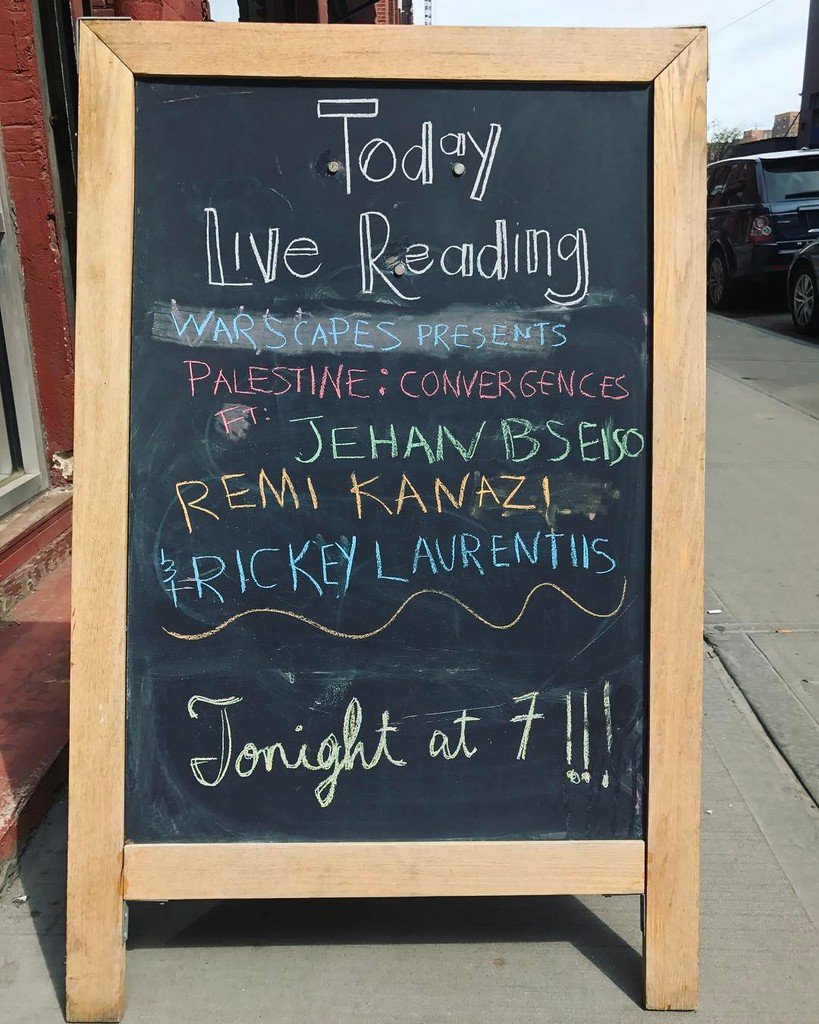 Today
Live Reading
WARSCAPES PRESENTS
PALESTINE: CONVERGENCES
FT: JEHAN BSEISO
REMI KANAZI
& RICKEY LAURENTIIS
Tonight at 7!!!